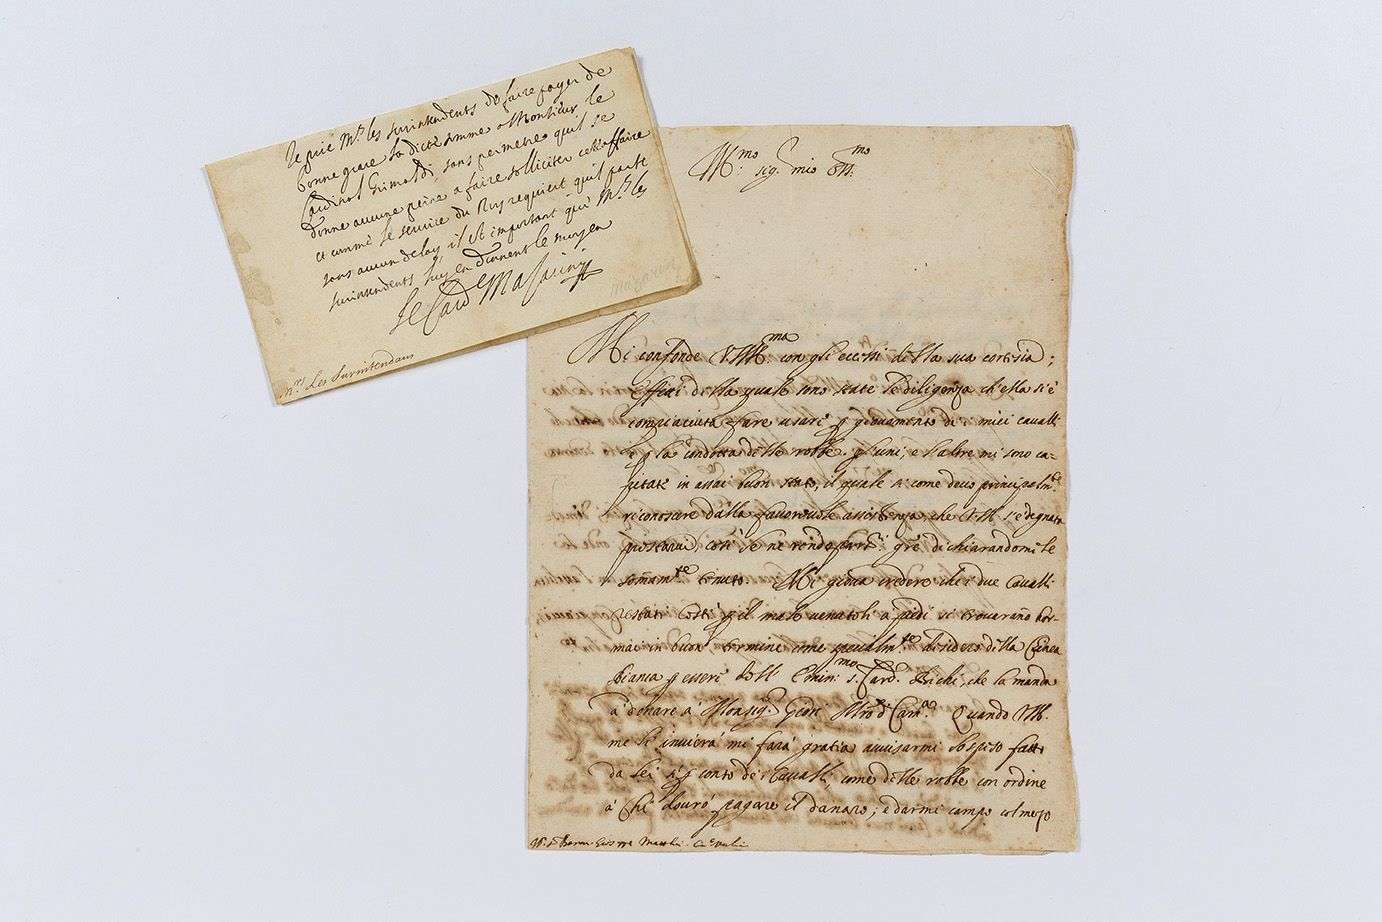 Je prie Mrs les surintendents de faire payer de
bonne grace la dicte somme a Monsieur le
Cardinal Grimaldi sans permetre qu'il se
donne aucune peine a faire solliciter cest affaire
et comme le service du Roy requiert qu'il parte
sans aucun delay, il est important que Mrs les
surintendents luy en donnent le moyen
le Card Mazarini
mazarin
Mrs Les Surintendans
Ill.mo sig.r mio oss.mo
Mi confonde V.S. Ill.ma con gli eccessi della sua cortesia;
effetti della quale sono state le diligenze ch'ella s'è
compiaciuta fare usare p giovamento de i miei cavalli
e p la condotta delle robbe. gl'uni, e l'altre mi sono ca-
pitate in assai buon stato, il quale si come devo principalm.te
riconoscere dalla favorevole assistenza, che V.S. Ill. s'è degnata
prestarvi, così le ne rendo gratie dichiarandomi le
sommam.te tenuto. Mi giova credere che i due Cavalli
restati costì p il male venutoli a' piedi si trovaranno hor-
mai in buon termine come egualm.te desidero della Chinea
bianca p essere dell' Emin.mo s. Card. Bichi, che la manda
a donare a Monsig.r Mro di Cam.ra Quando V.S. Ill.
me li invierà mi farà gratia avvisarmi lo speso fatto
da lei sì p conto de i Cavalli, come delle robbe con ordine
a chi dovrò pagare il danaro; e darmi campo col mezo